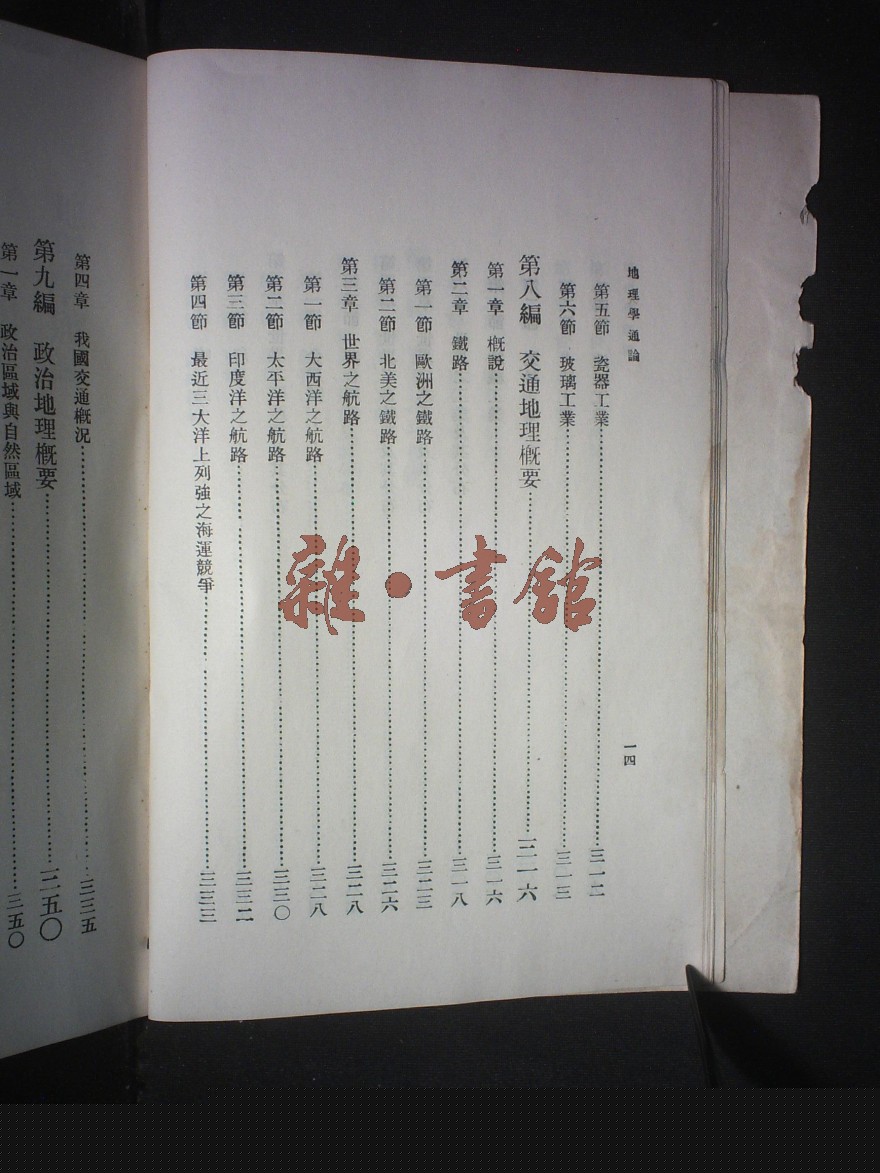 地理學通論
一四
第五節 瓷器工業……三一二
第六節 玻璃工業……三一三
第八編 交通地理概要……三一六
第一章 概說……三一六
第二章 鐵路……三一八
第一節 歐洲之鐵路……三二三
第二節 北美之鐵路……三二六
第三章 世界之航路……三二八
第一節 大西洋之航路……三二八
第二節 太平洋之航路……三三〇
第三節 印度洋之航路……三三二
第四節 最近三大洋上列強之海運競爭……三三三
第四章 我國交通概況……三三五
第九編 政治地理概要……三五〇
第一章 政治區域與自然區域……三五〇
雜·書館